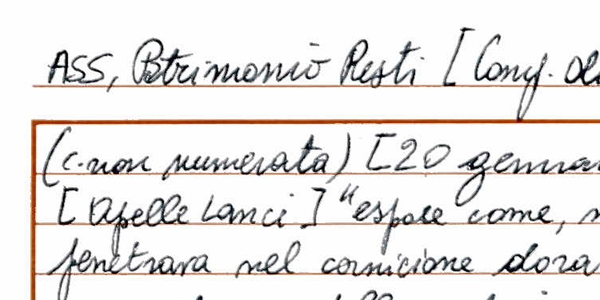 ASS, Patrimonio Resti [Conf. de
(c. non numerata) [20 genna
[Apelle Lanci] "espone come,
penetrava nel cornicione dora